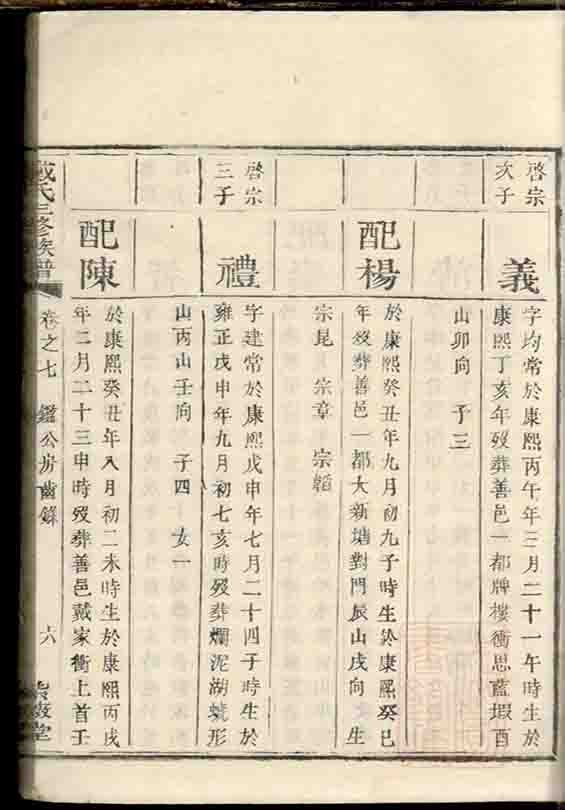 啓宗
次子
義
字均常於康熙丙午年三月二十一午時生於
康熙丁亥年歿葬善邑一都牌樓衝思藍塅酉
山卯向 子三
配楊
於康熙癸丑年九月初九子時生於康熙癸巳
年歿葬善邑一都大新塘對門辰山戌向 生
宗昆 宗章 宗韜
啓宗
三子
禮
字建常於康熙戊申年七月二十四子時生於
雍正戊申年九月初七亥時歿葬爛泥湖蜣形
山丙山壬向 子四 女一
配陳
於康熙癸丑年八月初二未時生於康熙丙戌
年二月二十三申時歿葬善邑戴家衝上首壬
戴氏三修族譜
卷之七 鑑公房齒錄 六